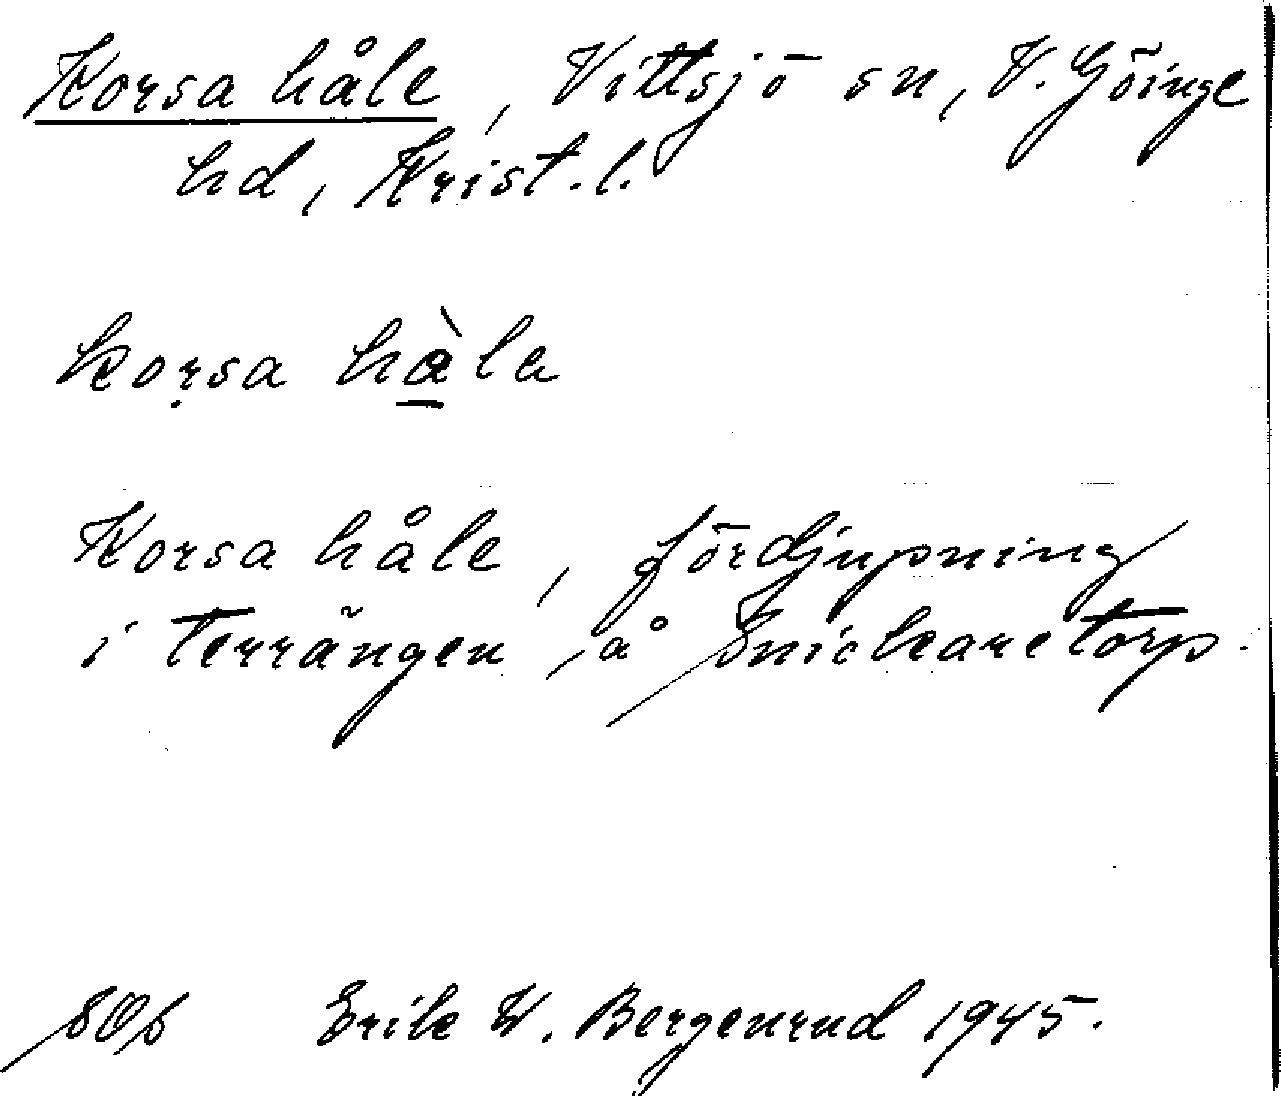 Korsa håle, Vittsjö sn, V. Göinge
hd, Krist. l.
korsa hàla
Korsa håle, fördjupning
i terrängen, å Snickaretorp.
Erik W. Bergenrud 1945.